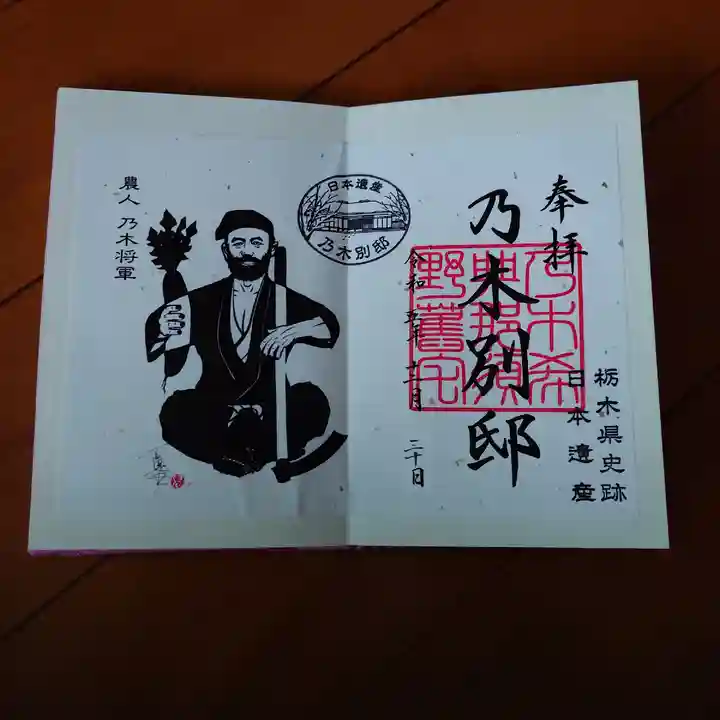 奉拝
乃木別邸
乃木希
典那須
野舊宅
栃木県史跡
日本遺産
令和五年十二月二十日
日本遺産
乃木別邸
農人 乃木将軍